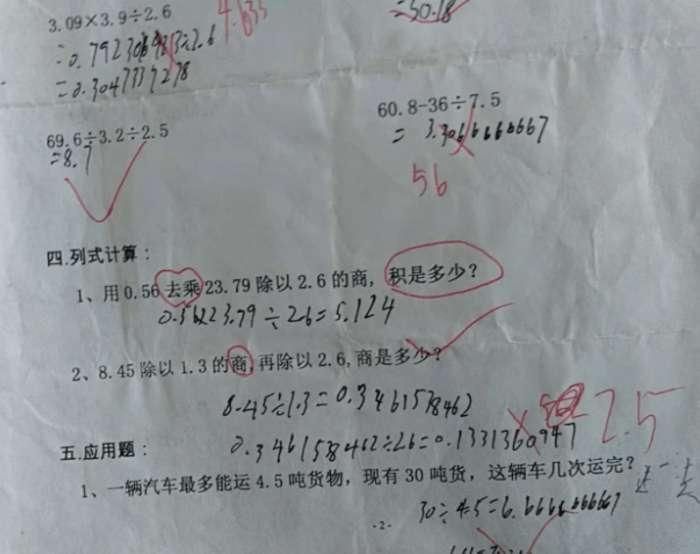 3.09×3.9÷2.6
4.635
=50.18
=0.3047337278
60.8-36÷7.5
69.6÷3.2÷2.5
=8.7
56
四.列式计算：
1、用0.56去乘23.79除以2.6的商，积是多少？
0.56×23.79÷2.6=5.124
2、8.45除以1.3的商,再除以2.6,商是多少？
8.45÷1.3=0.3461578462
2.5
五.应用题：
0.3461578462÷2.6=0.1331360947
1、一辆汽车最多能运4.5吨货物，现有30吨货，这辆车几次运完？
30÷4.5=6.6666666667
-2-